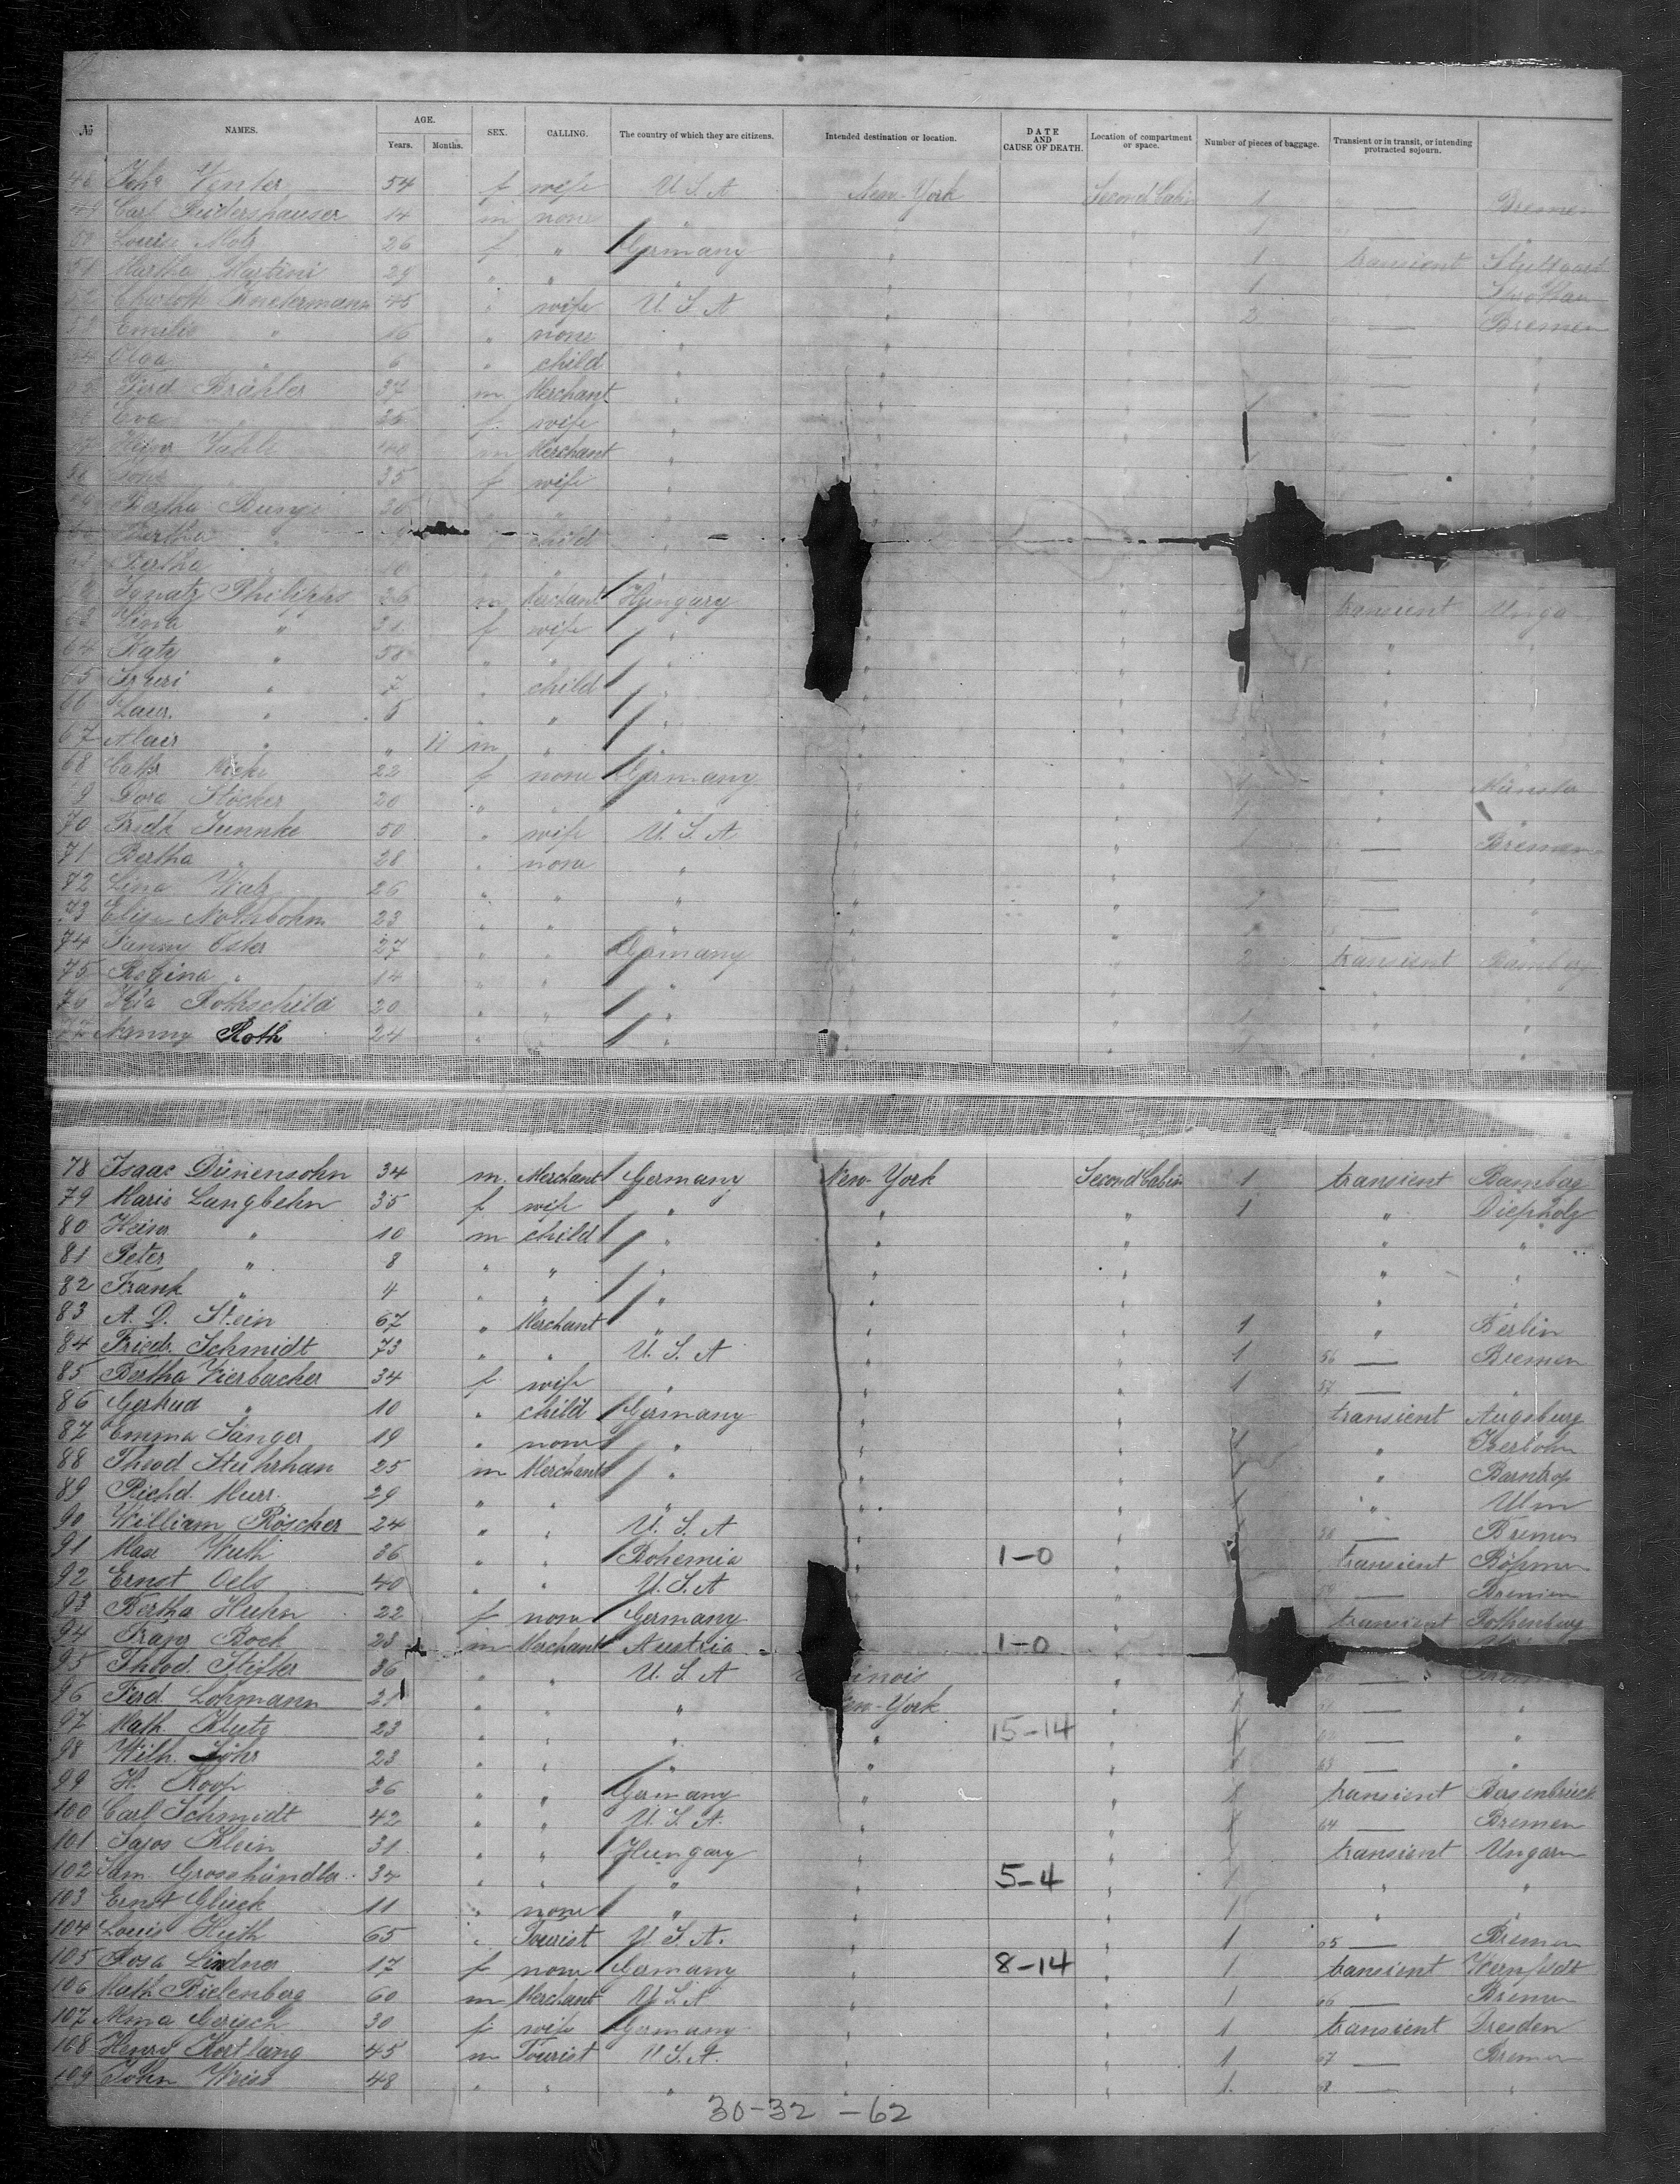 № NAMES. AGE. Years. Months. SEX. CALLING. The country of which they are citizens. Intended destination or location. DATE AND CAUSE OF DEATH. Location of compartment or space. Number of pieces of baggage. Transient or in transit, or intending protracted sojourn.
48 Winter 54 f wife U. S. A New-York Second Cabin 1 — Bremen
49 Carl 14 m none " " " 1 — "
50 Louise Motz 26 f " Germany " " 1 transient Stuttgart
51 Martha Martini 29 " " " " " 1 "
52 45 " wife U. S. A " " 2 — Bremen
53 Emilie " 16 " none " " " — "
54 Olga " 6 " child " " " — "
55 Ferd Brähler 37 m Merchant " " " — "
56 Eva " 35 f wife " " " — "
57 Heinr 40 m Merchant " " " — "
58 35 f wife " "
59 Bertha 30 " "
60 Bertha " child "
61 Bertha " 10 " "
62 Ignatz Philipps 26 m Merchant Hungary " " transient
63 " 31 f wife " " " "
64 Katy " 58 " " " " " "
65 " 7 " child " " " "
66 Laur. " 5 " " " " " "
67 " " 11 m " " " " "
68 Cath 22 f none Germany " " 1 "
69 Dora Stöcker 20 " " " " " 1 " "
70 50 " wife U. S. A " " 1 — Bremen
71 Bertha " 28 " none " " " — "
72 Lina Walz 26 " " " " " 2 — "
73 Elise Nothbohm 23 " " " " " — "
74 Fanny Oster 27 " " Germany " " 2 transient Bamberg
75 Regina " 14 " " " " " " "
76 Rothschild 20 " " " " " 1 " "
77 Nanny Roth 24 " " " " " 1 " "
78 Isaac Dünensohn 34 m. Merchant Germany New-York Second Cabin 1 transient Bamberg
79 Marie Langbehn 35 f wife " " " 1 " Diepholz
80 Heinr. " 10 m child " " " " "
81 Peter " 8 " " " " " " "
82 Frank " 4 " " " " " " "
83 A. D. Stein 67 " Merchant " " " 1 " Berlin
84 Friedr. Schmidt 73 " " U. S. A " " 1 56 — Bremen
85 Bertha Vierbacher 34 f wife " " " 1 57 — "
86 Gertrud " 10 " child Germany " " transient Augsburg
87 Emma Sänger 19 " none " " " 1 " Iserlohn
88 Theod Stuhrhan 25 m Merchant " " " 1 " Barntrop
89 Richd. Murr. 29 " " " " " 1 " Ulm
90 William Röscher 24 " " U. S. A " " 1 58 — Bremen
91 Max Wuth 36 " " Bohemia " 1-0 " transient Böhmen
92 Ernst Oels 40 " " U. S. A " " 59 — Bremen
93 Bertha Huhn 22 f none Germany " transient Rothenburg
94 Franz Bock 23 m Merchant Austria 1-0 "
95 Theod. Stifter 36 " " U. S. A inois " —
96 Ferd. Lohmann 21 " " " New-York " 1 — "
97 Math. Klutz 23 " " " " 15-14 " 1 — "
98 Wilh. Johr 23 " " " " " 1 63 — "
99 H. Koop 36 " " Germany " " 1 transient Bersenbrück
100 Carl Schmidt 42 " " U. S. A. " " 1 64 — Bremen
101 Lajos Klein 31 " " Hungary " " 1 transient Ungarn
102 Sam. Grosshändler 34 " " " " 5-4 " 1 " "
103 Ernst Glück 11 " none " " " 1 " "
104 Louis Huth 65 " Tourist U. S. A. " " 1 65 — Bremen
105 Rosa Lindner 17 f none Germany " 8-14 " 1 transient
106 Math Fielenberg 60 m Merchant U. S. A " " 1 66 — Bremen
107 Gerisch 30 f wife Germany " " 1 transient Dresden
108 Henry Kortlang 45 m Tourist U. S. A. " " 1 67 — Bremen
109 John Weiss 48 " " " " " 1. 68 — "
30-32 -62